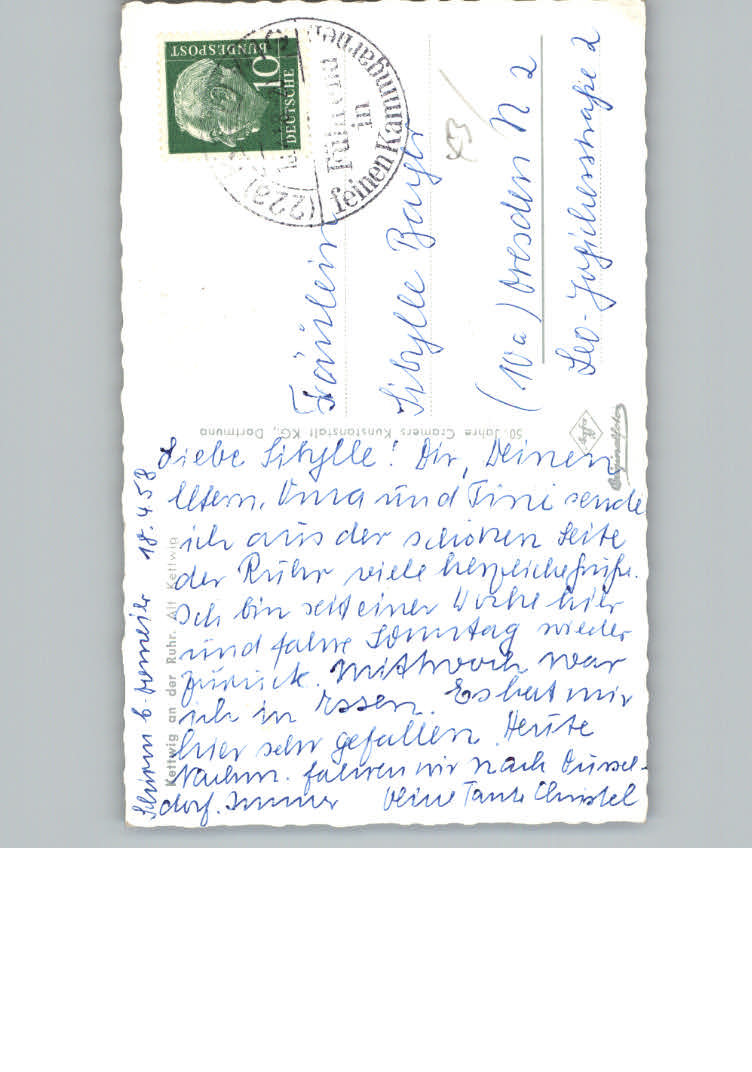 Liebe Sibylle! Dir, Deinen
Eltern, Oma und Tini sende
ich aus der schönen Seite
der Ruhr viele herzliche Grüße.
Ich bin seit einer Woche hier
und fahre Sonntag wieder
zurück. Mittwoch war
ich in Essen. Es hat mir
hier sehr gefallen. Heute
Nachm. fahren wir nach Düssel-
dorf. Immer Deine Tante Christel
18.4.58
Kettwig an der Ruhr. Alt Kettwig
50 Jahre Cramers Kunstanstalt KG., Dortmund
Agfa
Originalfoto
DEUTSCHE
BUNDESPOST
10
(22a)
Führend
in
feinen Kammgarnen
53
Fräulein
Sibylle
(10a) Dresden N 2
Leo-Jogichesstraße 2